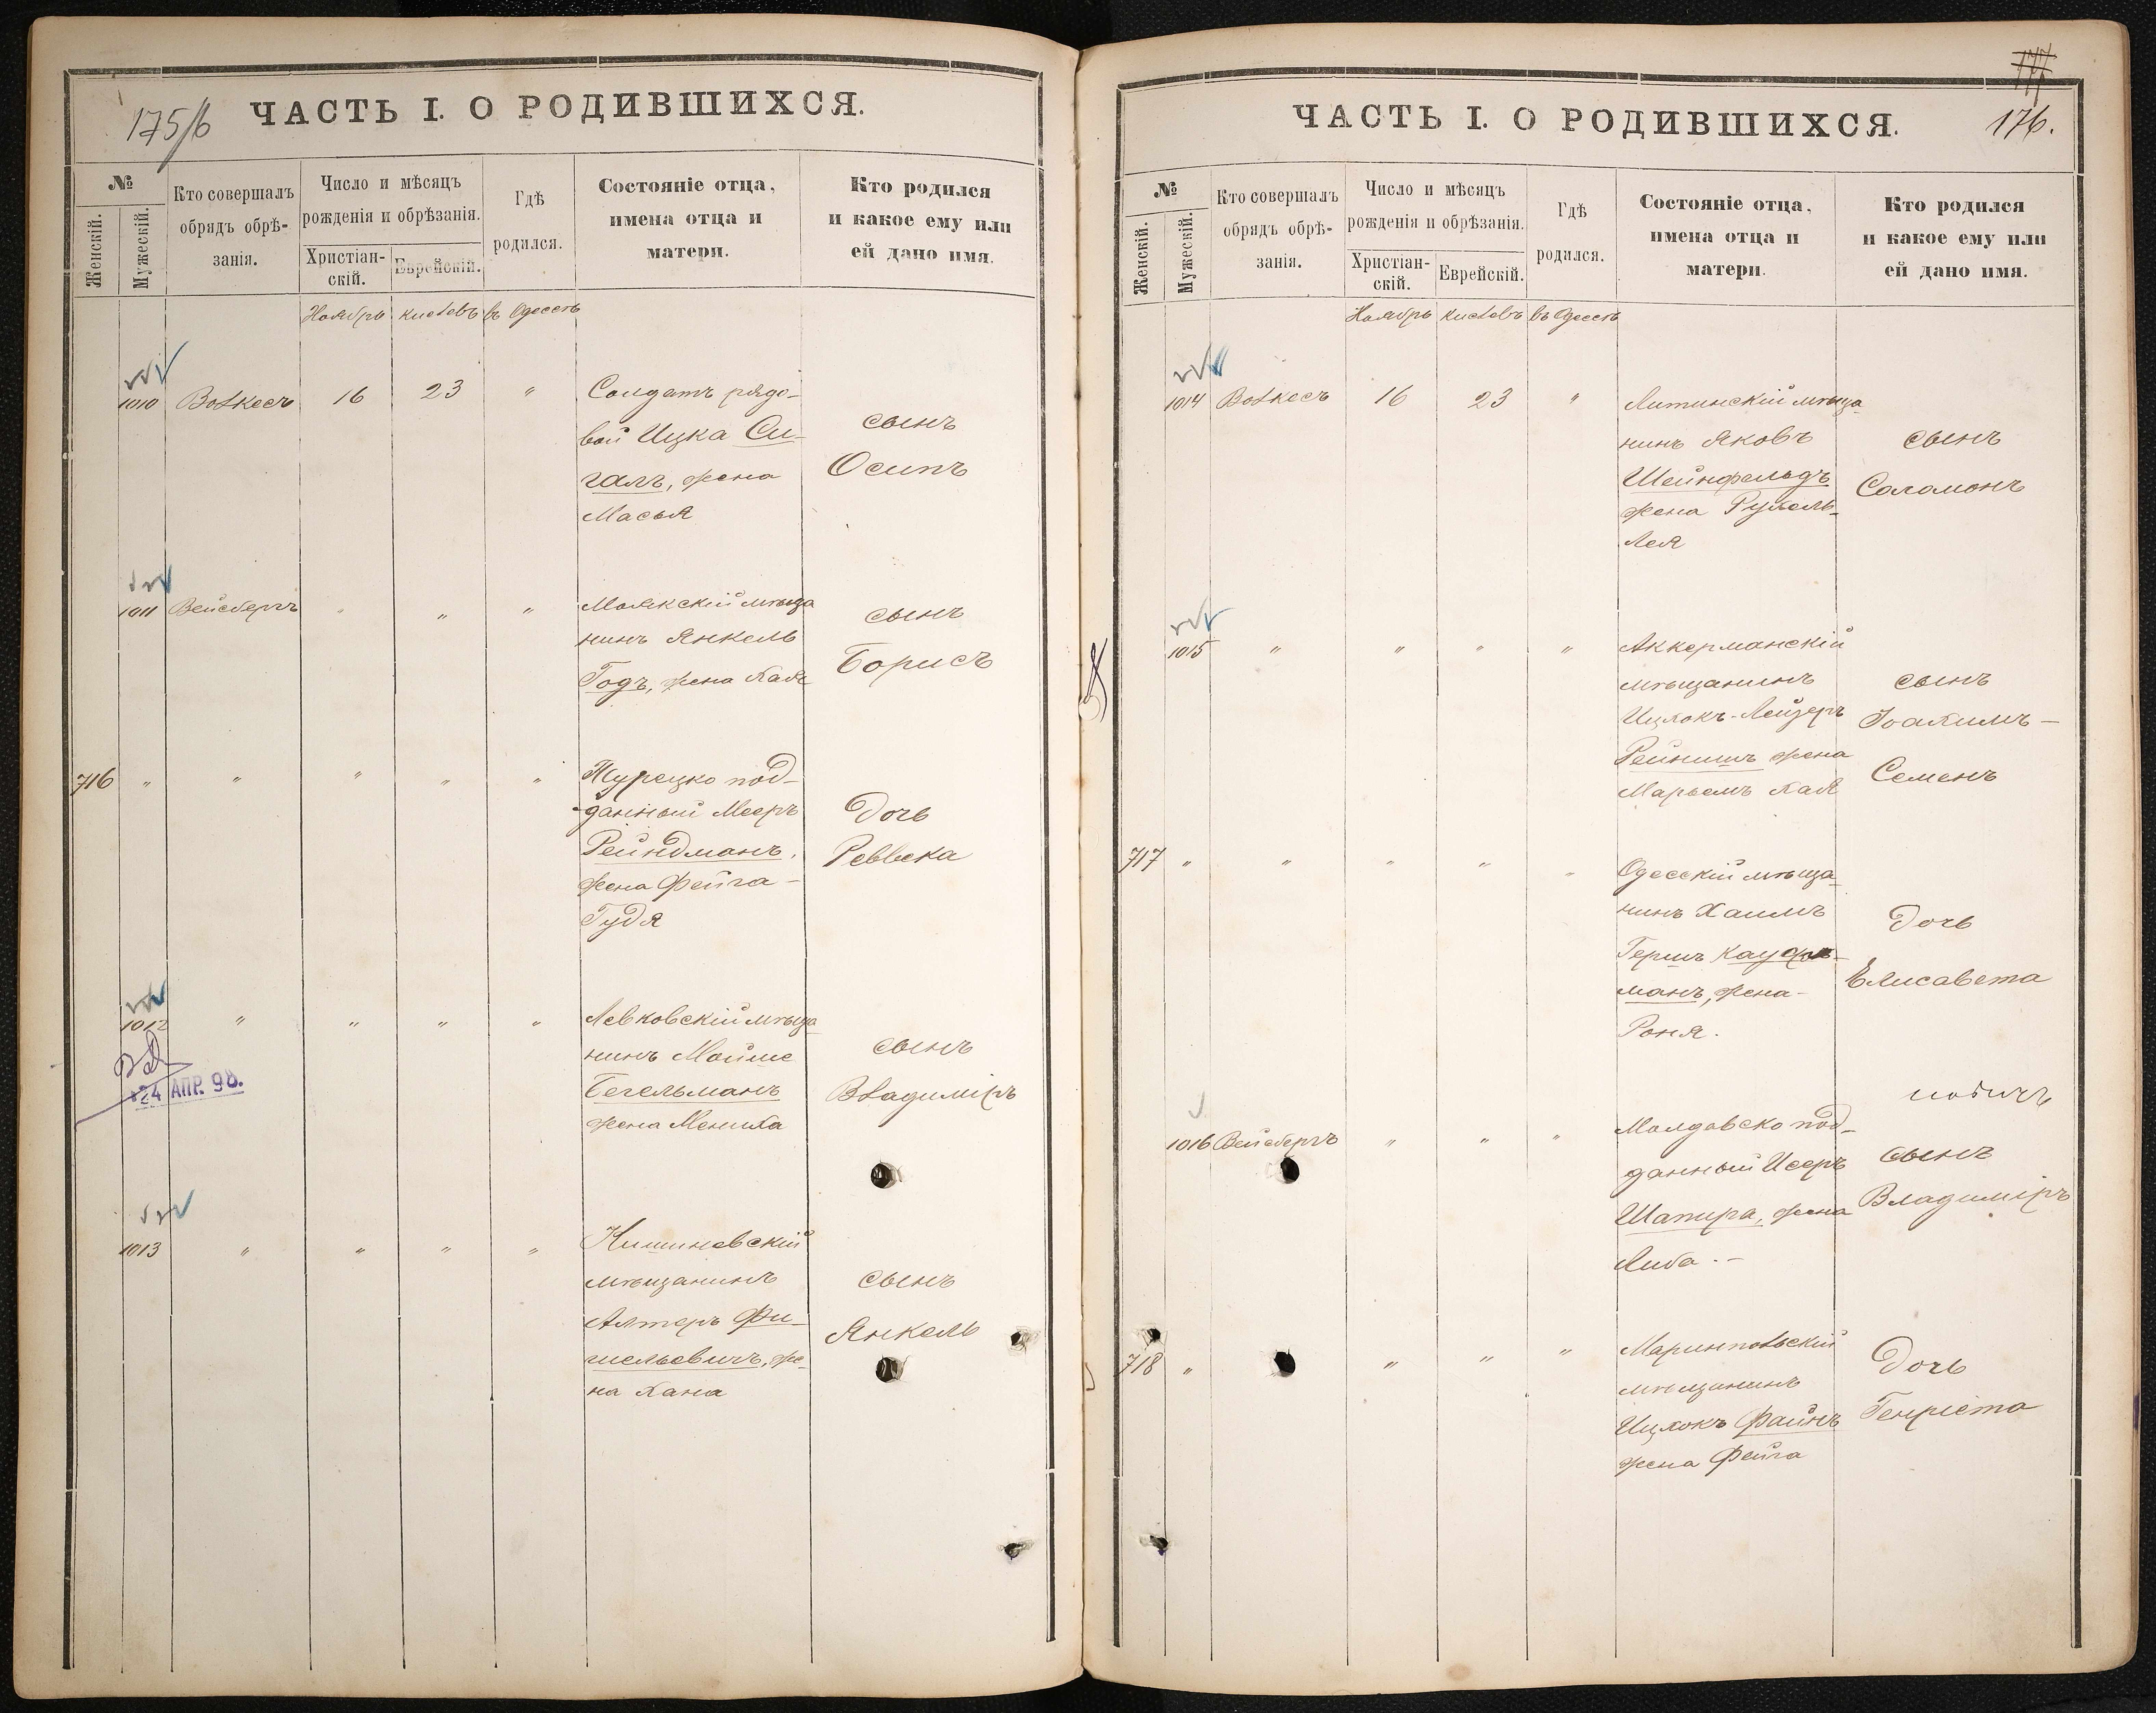 175/б
ЧАСТЬ I. О РОДИВШИХСЯ.
№
Женскій.
Мужескій.
Кто совершалъ
обрядъ обрѣ-
занія.
Число и мѣсяцъ
рожденія и обрѣзанія.
Христіан-
скій.
Еврейскій.
Гдѣ
родился.
Состояніе отца,
имена отца и
матери.
Кто родился
и какое ему или
ей дано имя.
Ноябрь кислевъ въ Одессѣ
1010 Волкесъ 16 23 "
Солдатъ рядо-
вой Ицка Си-
галъ, жена
Масья
сынъ
Осипъ
1011 Вейсбергъ " " "
Маякскій мѣща
нинъ Янкель
Годъ, жена Хая
сынъ
Борисъ
716 " " " " "
Турецко под-
данный Мееръ
Рейндманъ,
жена Фейга-
Гудя
дочь
Реввека
1012 " " " "
24 АПР. 98.
Левковскій мѣща
нинъ Мойше
Бегельманъ
жена Мениха
сынъ
Владиміръ
1013 " " " "
Кишиневскій
мѣщанинъ
Алтеръ Фи-
шельевичъ, же-
на Хана
сынъ
Янкель
177
176.
ЧАСТЬ I. О РОДИВШИХСЯ.
№
Женскій.
Мужескій.
Кто совершалъ
обрядъ обрѣ-
занія.
Число и мѣсяцъ
рожденія и обрѣзанія.
Христіан-
скій.
Еврейскій.
Гдѣ
родился.
Состояніе отца,
имена отца и
матери.
Кто родился
и какое ему или
ей дано имя.
Ноябрь кислевъ въ Одессѣ
1014 Волкесъ 16 23 "
Литинскій мѣща
нинъ Яковъ
Шейнфельдъ
жена Рухель-
Лея
сынъ
Соломонъ
1015 " " " "
Аккерманскій
мѣщанинъ
Ицхокъ-Лейзеръ
Рейнишъ жена
Марьемъ Хая
сынъ
Іоахимъ-
Семенъ
717 " " " " "
Одесскій мѣща
нинъ Хаимъ
Гершъ Кауф-
манъ, жена-
Роня.
дочь
Елисавета
1016 Вейсбергъ " " "
Молдавско под-
данный Исеръ
Шапира, жена
Либа.-
сынъ
Владиміръ
718 " " " "
Маринпольскій
мѣщанинъ
Ицхокъ Файнъ
жена Фейга
дочь
Генріета